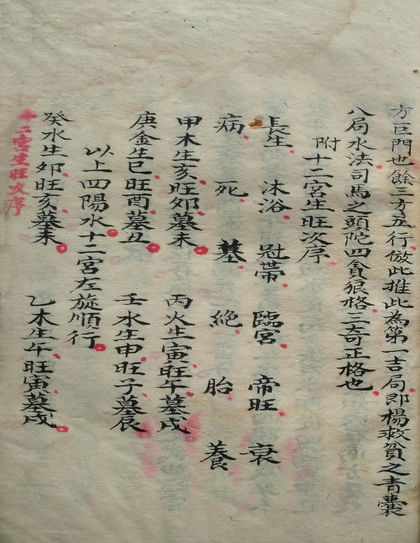 方巨門也餘三方五行倣此推此為第一吉局即楊救貧之青囊
八局水法司馬之頭陀四貪狼格三奇正格也
附十二宮生旺次序
長生 沐浴 冠帶 臨官 帝旺 衰
病 死 墓 絕 胎 養
甲木生亥旺卯墓未 丙火生寅旺午墓戌
庚金生巳旺酉墓丑 壬水生申旺子墓辰
以上四陽水十二宮左旋順行
癸水生卯旺亥墓未 乙木生午旺寅墓戌
十二宮生旺次序